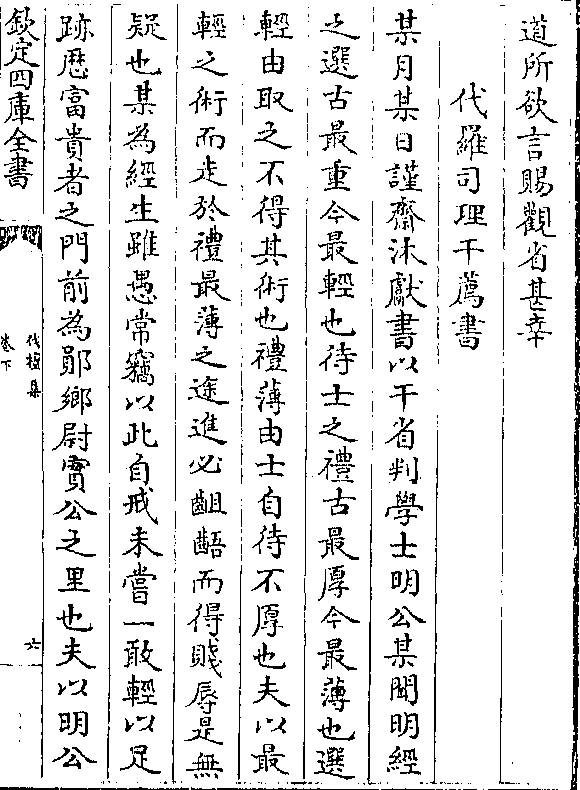 道所欲言賜觀省甚幸
代羅司理干薦書
某月某日謹齋沐獻書以干省判學士明公某聞明經
之選古最重今最輕也待士之禮古最厚今最薄也選
輕由取之不得其術也禮薄由士自待不厚也夫以最
輕之術而走於禮最薄之途進必齟齬而得賤辱是無
疑也某為經生雖愚常竊以此自戒未嘗一敢輕以足
跡厯富貴者之門前為鄖鄉尉實公之里也夫以明公
欽定四庫全書
伐檀集
卷下
六